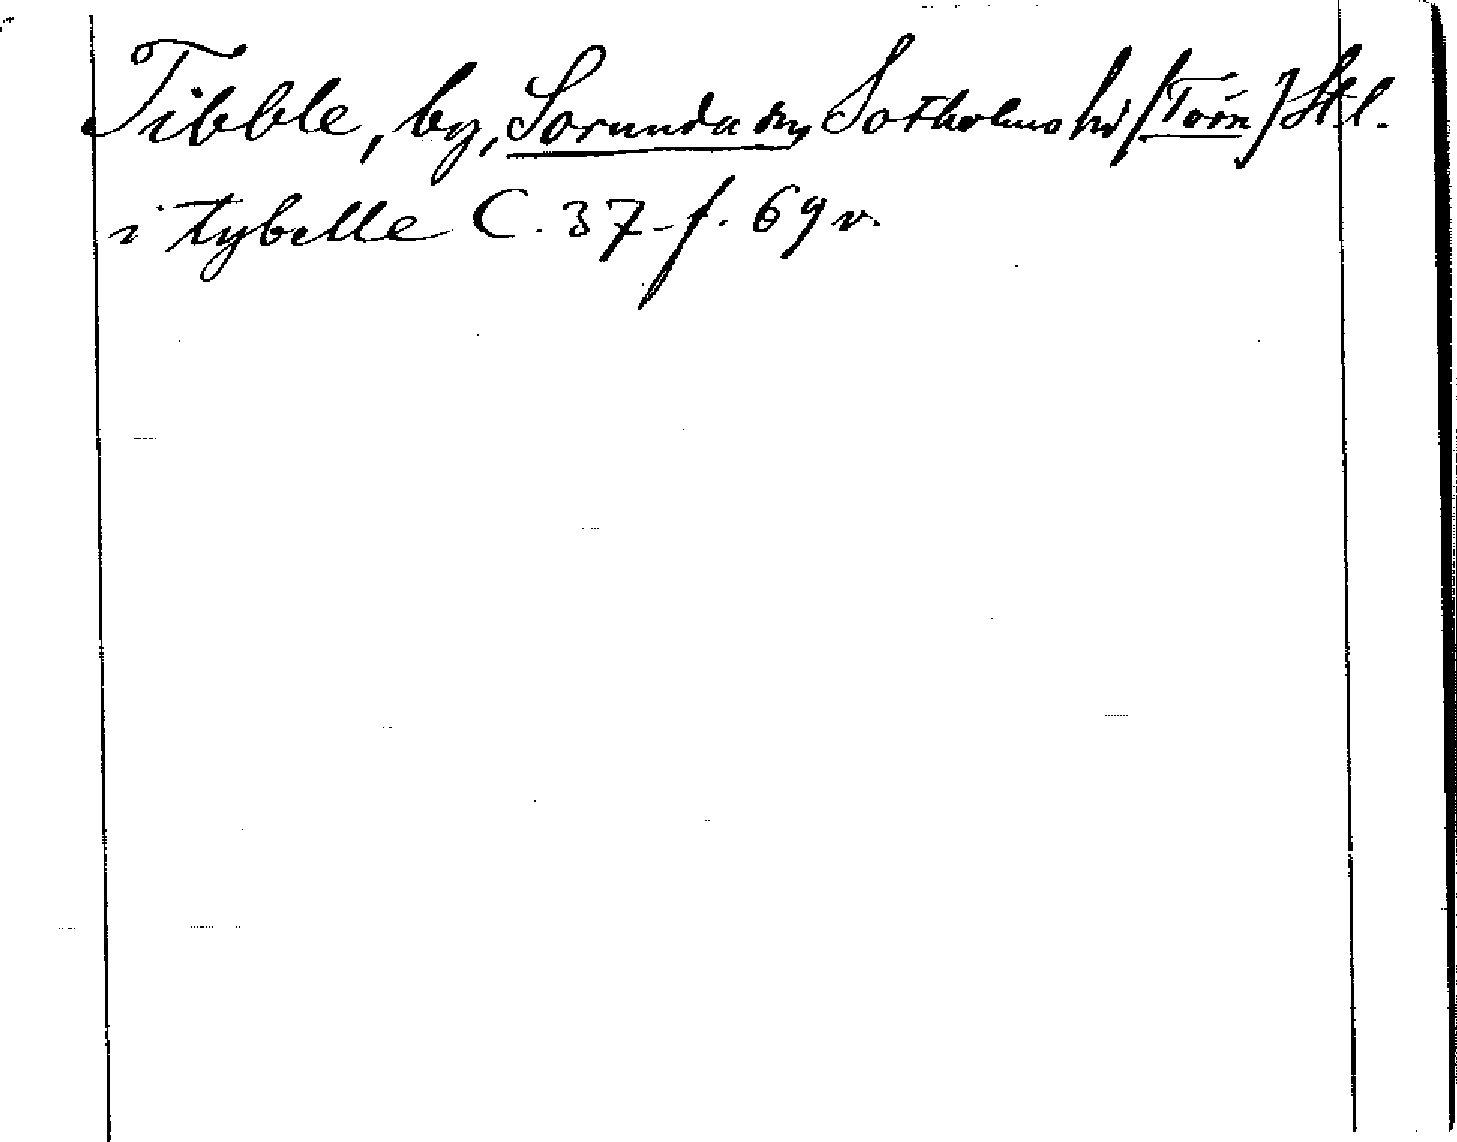 Tibble, by, Sorunda sn, Sotholms hd [Törn] Stl.
i tybelle C. 37 f. 69 v.